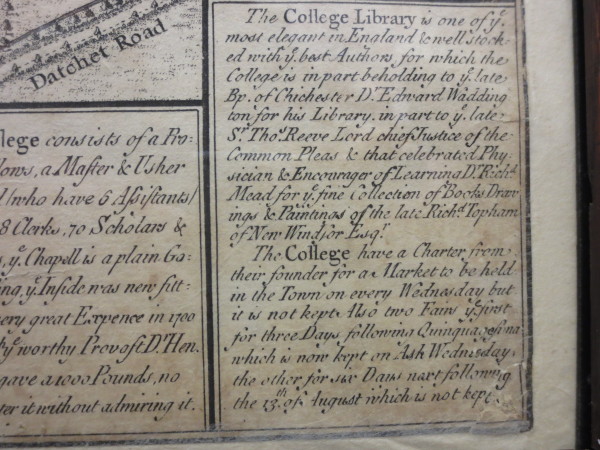 Datchet Road
llege consists of a Pro:
llows, a Master & Usher
d (who have 5 Assistants)
8 Clerks, 70 Scholars &
s, yᵉ. Chapell is a plain Go:
ing, yᵉ. Inside was new fitt:
very great Expence in 1700
h yᵉ worthy Provost Dʳ. Hen.
gave a 1000 Pounds, no
ter it without admiring it.
The College Library is one of yᵉ.
most elegant in England & well stock
ed with yᵉ. best Authors, for which the
College is in part beholding to yᵉ. late
Bp. of Chichester Dʳ. Edward Wadding
ton for his Library, in part to yᵉ. late
Sʳ. Thoˢ. Reeve Lord chief Justice of the
Common Pleas & that celebrated Phy
sician & Encourager of Learning Dʳ. Richᵈ.
Mead for yᵉ. fine Collection of Books Draw
ings & Paintings of the late Richᵈ. Topham
of New Windsor Esqʳ.
The College have a Charter from
their founder for a Market to be held
in the Town on every Wednesday but
it is not kept. Also two Fairs yᵉ. first
for three Days following Quinquagesima
which is now kept on Ash Wednesday,
the other for six Days next following
the 13ᵗʰ of August which is not kept.